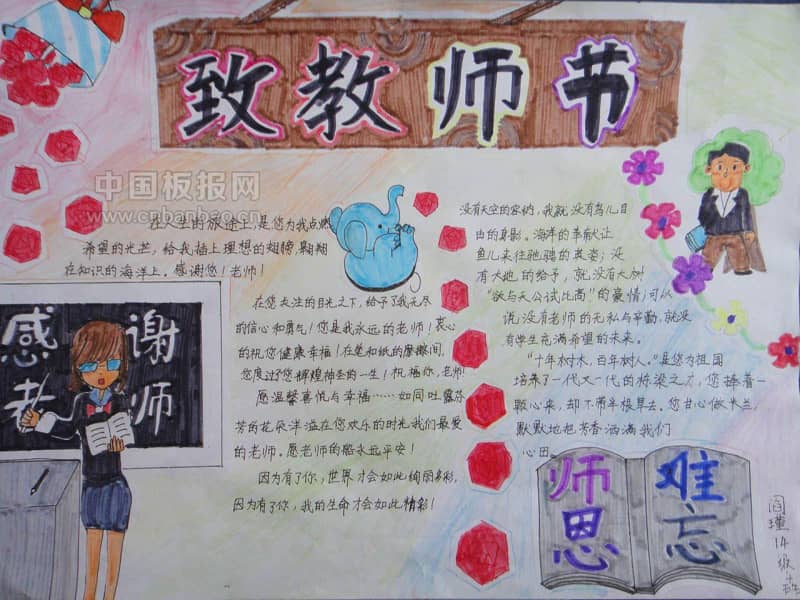 致教师节
中国板报网
www.cnbanbao.cn
在人生的旅途上,是您为我点燃
希望的光芒,给我插上理想的翅膀,翱翔
在知识的海洋上。感谢您!老师!
在您关注的目光之下,给予了我无尽
的信心和勇气!您是我永远的老师!衷心
的祝您健康幸福!在笔和纸的摩擦间,
您度过了您辉煌神圣的一生!祝福你,老师!
愿温馨喜悦与幸福……如同吐露芬
芳的花朵洋溢在您欢乐的时光我们最爱
的老师。愿老师的路永远平安!
因为有了你,世界才会如此绚丽多彩,
因为有了你,我的生命才会如此精彩!
没有天空的容纳,我就没有鸟儿自
由的身影。海洋的奉献让
鱼儿来往驰骋的英姿;没
有大地的给予,就没有大树
“欲与天公试比高”的豪情;可以
说,没有老师的无私与辛勤,就没
有学生充满希望的未来。
“十年树木,百年树人。”是您为祖国
培养了一代又一代的栋梁之才,您捧着一
颗心来,却不带半根草去。您甘心做米兰,
默默地把芳香洒满我们
心田。
感谢
老师
师恩
难忘
14级